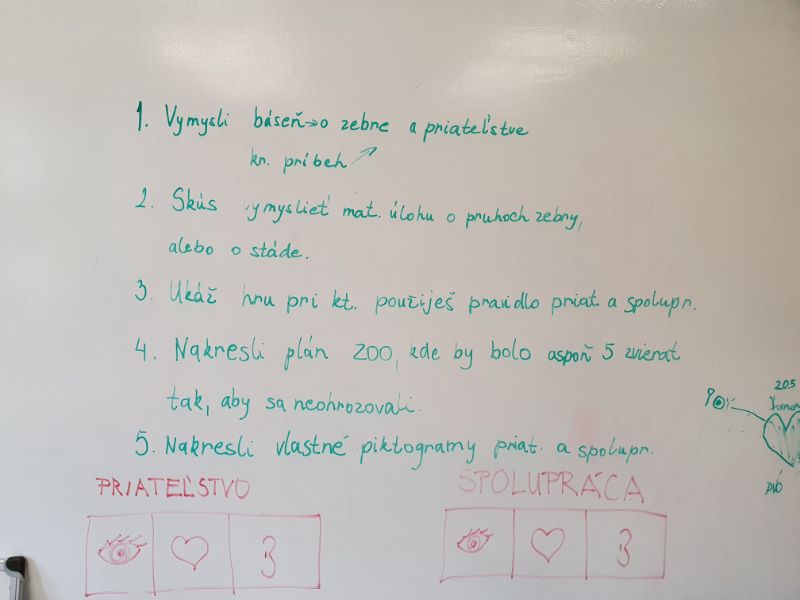 1. Vymysli báseň→o zebre a priateľstve
kr. príbeh
2. Skús vymyslieť mat. úlohu o pruhoch zebry,
alebo o stáde.
3. Ukáž hru pri kt. použiješ pravidlo priat a spolupr.
4. Nakresli plán ZOO, kde by bolo aspoň 5 zvierat
tak, aby sa neohrozovali.
5. Nakresli vlastné piktogramy priat. a spolupr.
20.5
PRIATEĽSTVO
SPOLUPRÁCA
3
3